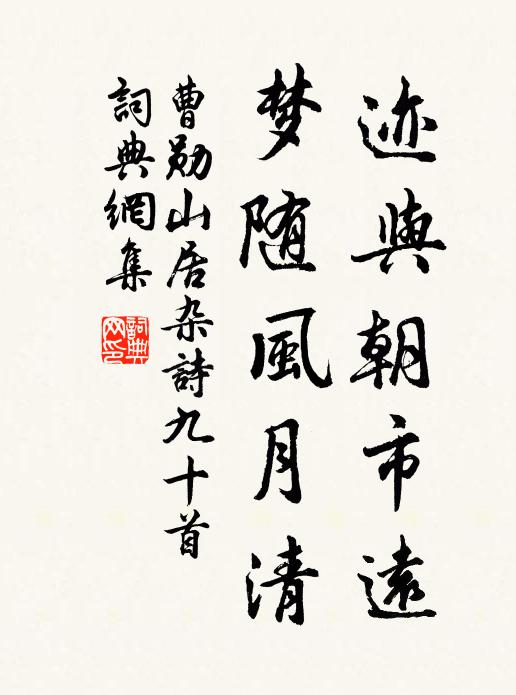 迹與朝市遠
梦随風月清
曹勛山居杂詩九十首
詞典網集
詞典網印